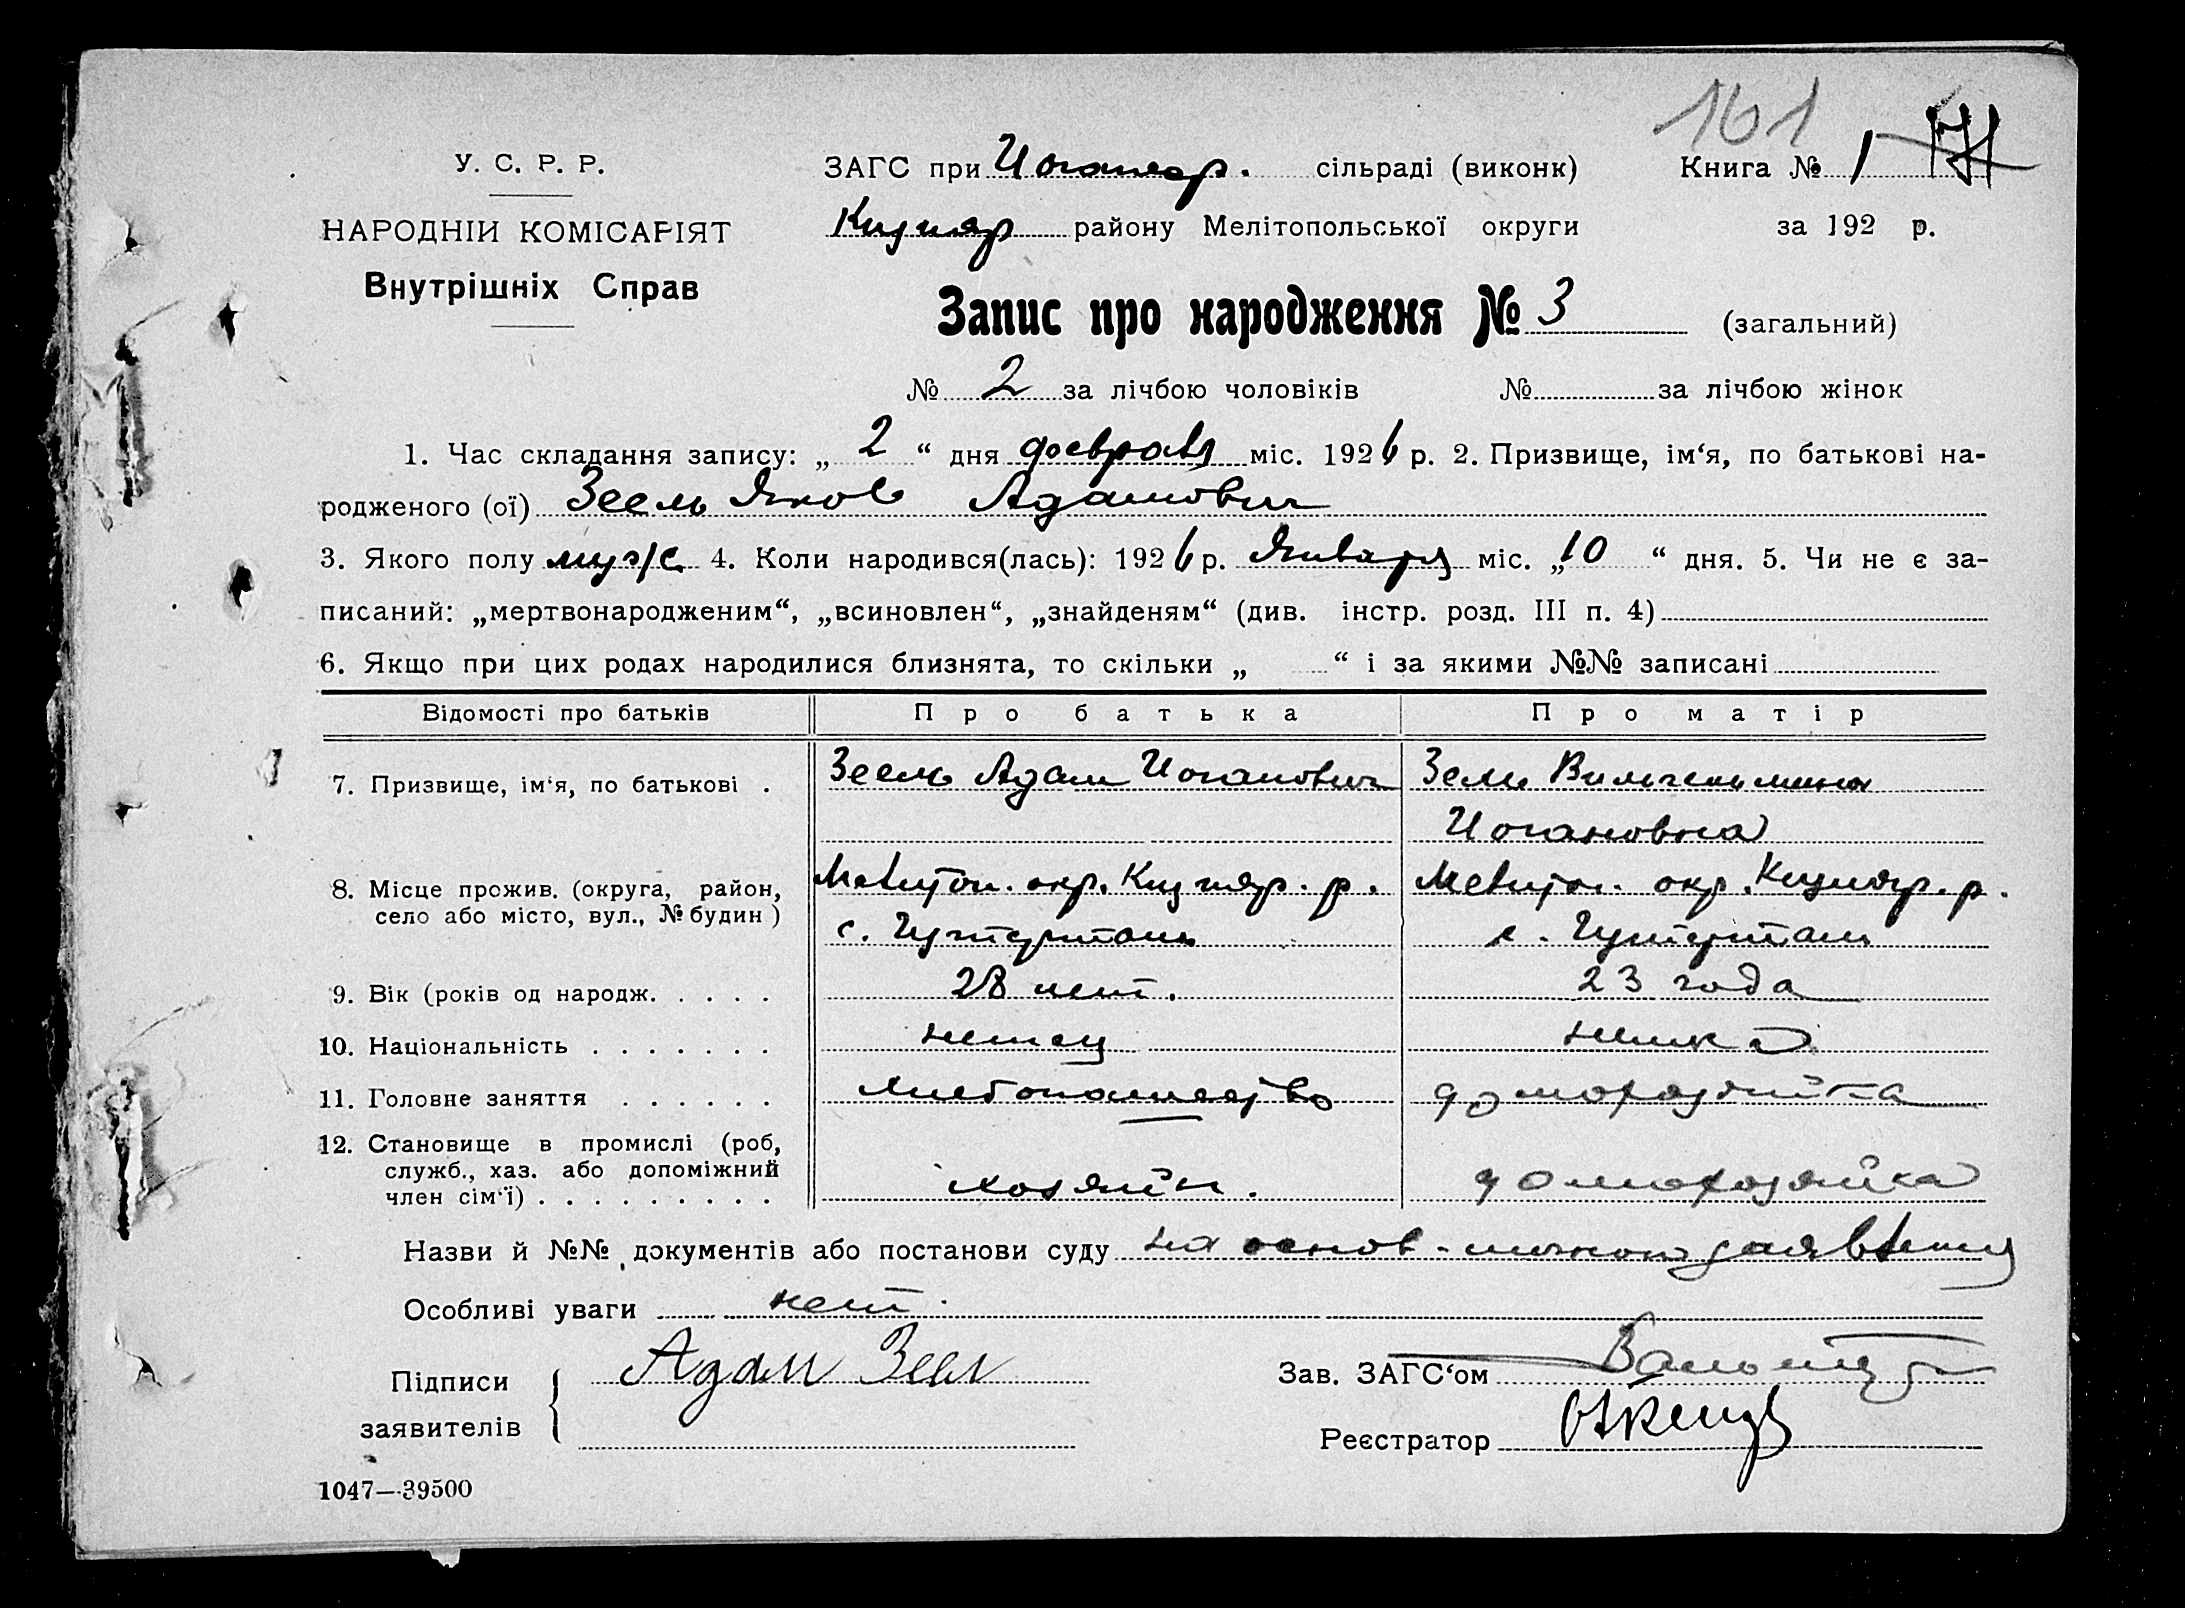 161
У. С. Р. Р.
ЗАГС при Иоганер. сільраді (виконк) Книга № 1
НАРОДНІЙ КОМІСАРІЯТ
Кизияр району Мелітопольської округи за 192 р.
Внутрішніх Справ
Запис про народження № 3 (загальний)
№ 2 за лічбою чоловіків № за лічбою жінок
1. Час складання запису: „ 2 “ дня февраля міс. 1926 р. 2. Призвище, ім‘я, по батькові на-
родженого (ої) Зеель Яков Адамович
3. Якого полу муж. 4. Коли народився(лась): 1926 р. Января міс. „10 “ дня. 5. Чи не є за-
писаний: „мертвонародженим“, „всиновлен“, „знайденям“ (див. інстр. розд. III п. 4)
6. Якщо при цих родах народилися близнята, то скільки „ “ і за якими №№ записані
Відомості про батьків Про батька Про матір
7. Призвище, ім‘я, по батькові . Зеель Адам Иоганович Зель Вильгельмина
Иогановна
8. Місце прожив. (округа, район, Мелитоп. окр. Кизияр. р. Мелитоп. окр. Кизияр. р.
село або місто, вул., № будин) с. Гутерталь с. Гутерталь
9. Вік (років од народж. . . . . 28 лет. 23 года
10. Національність . . . . . . . немец немка
11. Головне заняття . . . . . . хлебопашество домохозяйка
12. Становище в промислі (роб,
служб., хаз. або допоміжний
член сім‘ї) . . . . . . . . . хозяин. домохозяйка
Назви й №№ документів або постанови суду на основ. личного заявления
Особливі уваги нет.
Підписи Адам Зеел Зав. ЗАГС‘ом
заявителів
Реєстратор
1047—39500